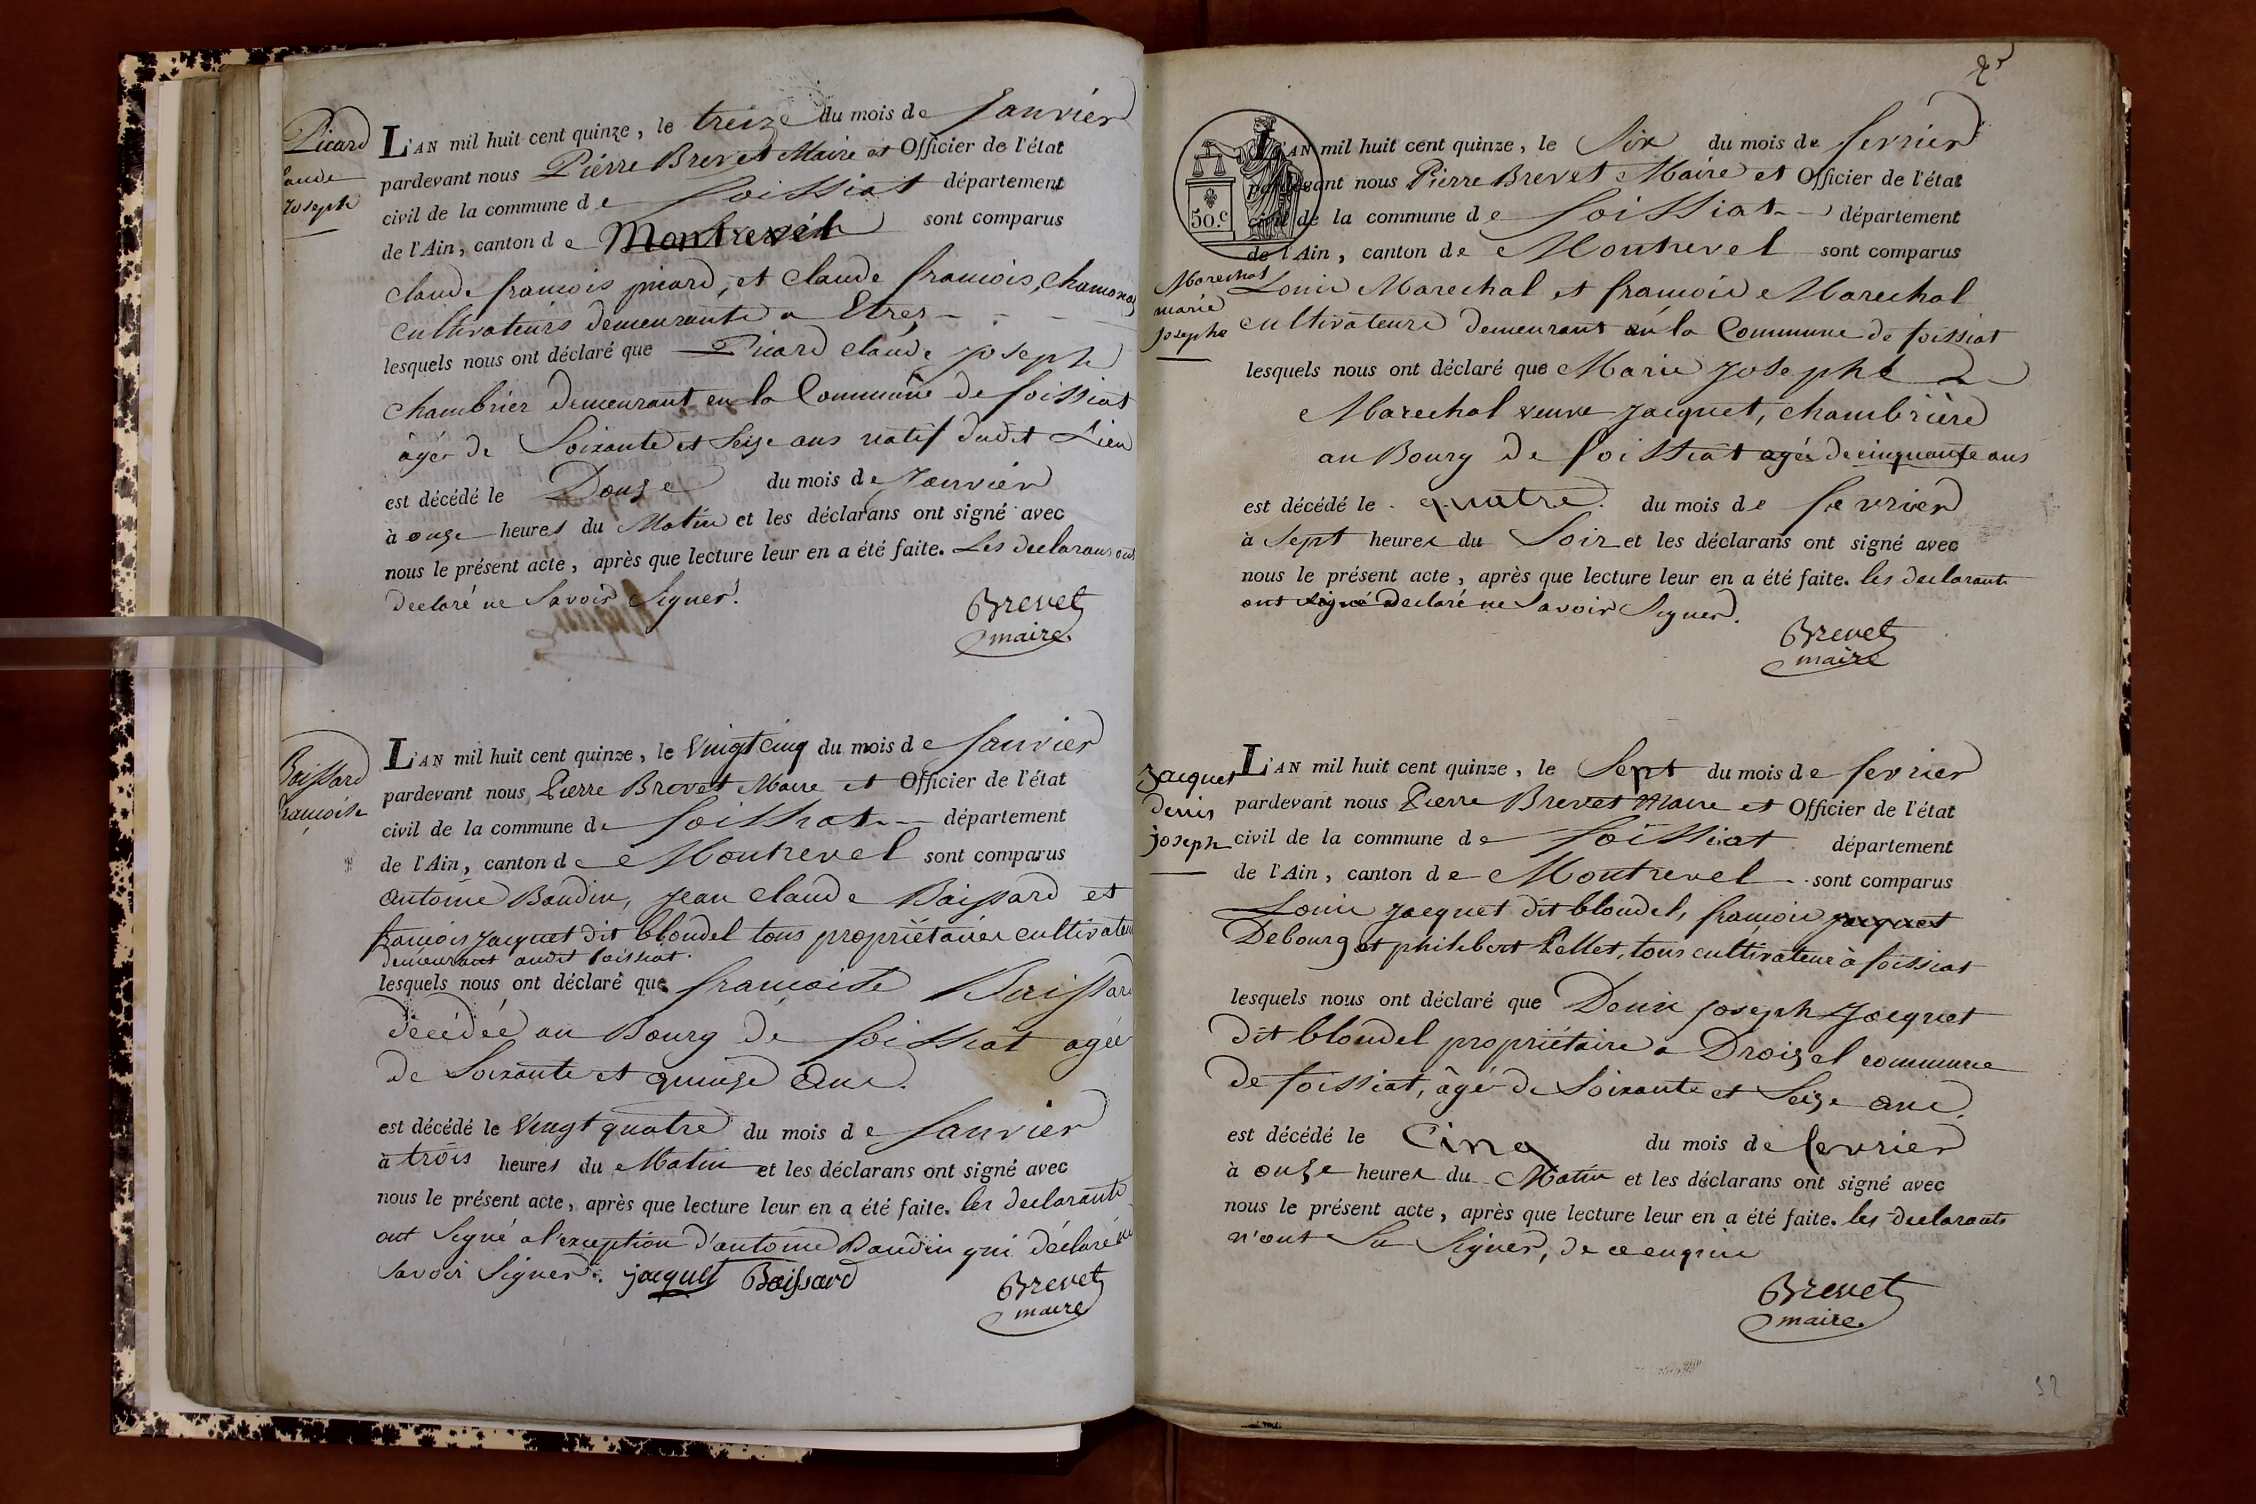 Picard
Claude
Joseph
L'AN mil huit cent quinze, le treize du mois de Janvier
pardevant nous Pierre Brevet Maire et Officier de l'état
civil de la commune de foissiat département
de l'Ain, canton de Montrevel sont comparus
claude francois picard, et claude francois, chamonas
cultivateurs demeurants a Etrez
lesquels nous ont déclaré que Picard claude joseph
chambrier demeurant en la Commune de foissiat
âgé de Soixante et Seize ans natif dudit Lieu
est décédé le Douze du mois de Janvier
à onze heures du Matin et les déclarans ont signé avec
nous le présent acte, après que lecture leur en a été faite. Les declarans ont
declaré ne Savoir Signer.
Brevet
maire
Boissard
françoise
L'AN mil huit cent quinze, le Vingt cinq du mois de Janvier
pardevant nous, Pierre Brevet Maire et Officier de l'état
civil de la commune de foissiat département
de l'Ain, canton de Montrevel sont comparus
antoine Baudin, jean claude Boissard et
francois jacquet dit blondel tous propriétaires cultivateurs
demeurant audit foissiat.
lesquels nous ont déclaré que francoise Boissard
décédée au Bourg de foissiat agée
de Soixante et quinze ans.
est décédé le Vingt quatre du mois de Janvier
à trois heures du Matin et les déclarans ont signé avec
nous le présent acte, après que lecture leur en a été faite. les declarants
ont Signé a l'exception d'antoine Baudin qui a déclaré ne
Savoir Signer. jacquet Boissard
Brevet
maire
50.c
Marechal
marie
josephe
L'AN mil huit cent quinze, le Six du mois de fevrier
pardevant nous Pierre Brevet Maire et Officier de l'état
civil de la commune de foissiat département
de l'Ain, canton de Montrevel sont comparus
Louis Marechal et francois Marechal
cultivateurs demeurant en la Commune de foissiat
lesquels nous ont déclaré que Marie josephe
Marechal veuve jacquet, chambrière
au Bourg de foissiat agée de cinquante ans
est décédé le quatre du mois de fevrier
à Sept heures du Soir et les déclarans ont signé avec
nous le présent acte, après que lecture leur en a été faite. les declarants
ont signé declaré ne Savoir Signer.
Brevet
maire
jacquet
denis
joseph
L'AN mil huit cent quinze, le Sept du mois de fevrier
pardevant nous Pierre Brevet Maire et Officier de l'état
civil de la commune de foissiat département
de l'Ain, canton de Montrevel sont comparus
Louis jacquet dit blondel, francois jacquet
Debourg et philibert Pellet, tous cultivateurs à foissiat
lesquels nous ont déclaré que Denis joseph Jacquet
dit blondel propriétaire a Droizel commune
de foissiat, âgé de Soixante et Seize ans.
est décédé le Cinq du mois de fevrier
à onze heures du Matin et les déclarans ont signé avec
nous le présent acte, après que lecture leur en a été faite. les declarants
n'ont Su Signer, de ce enquis
Brevet
maire
52